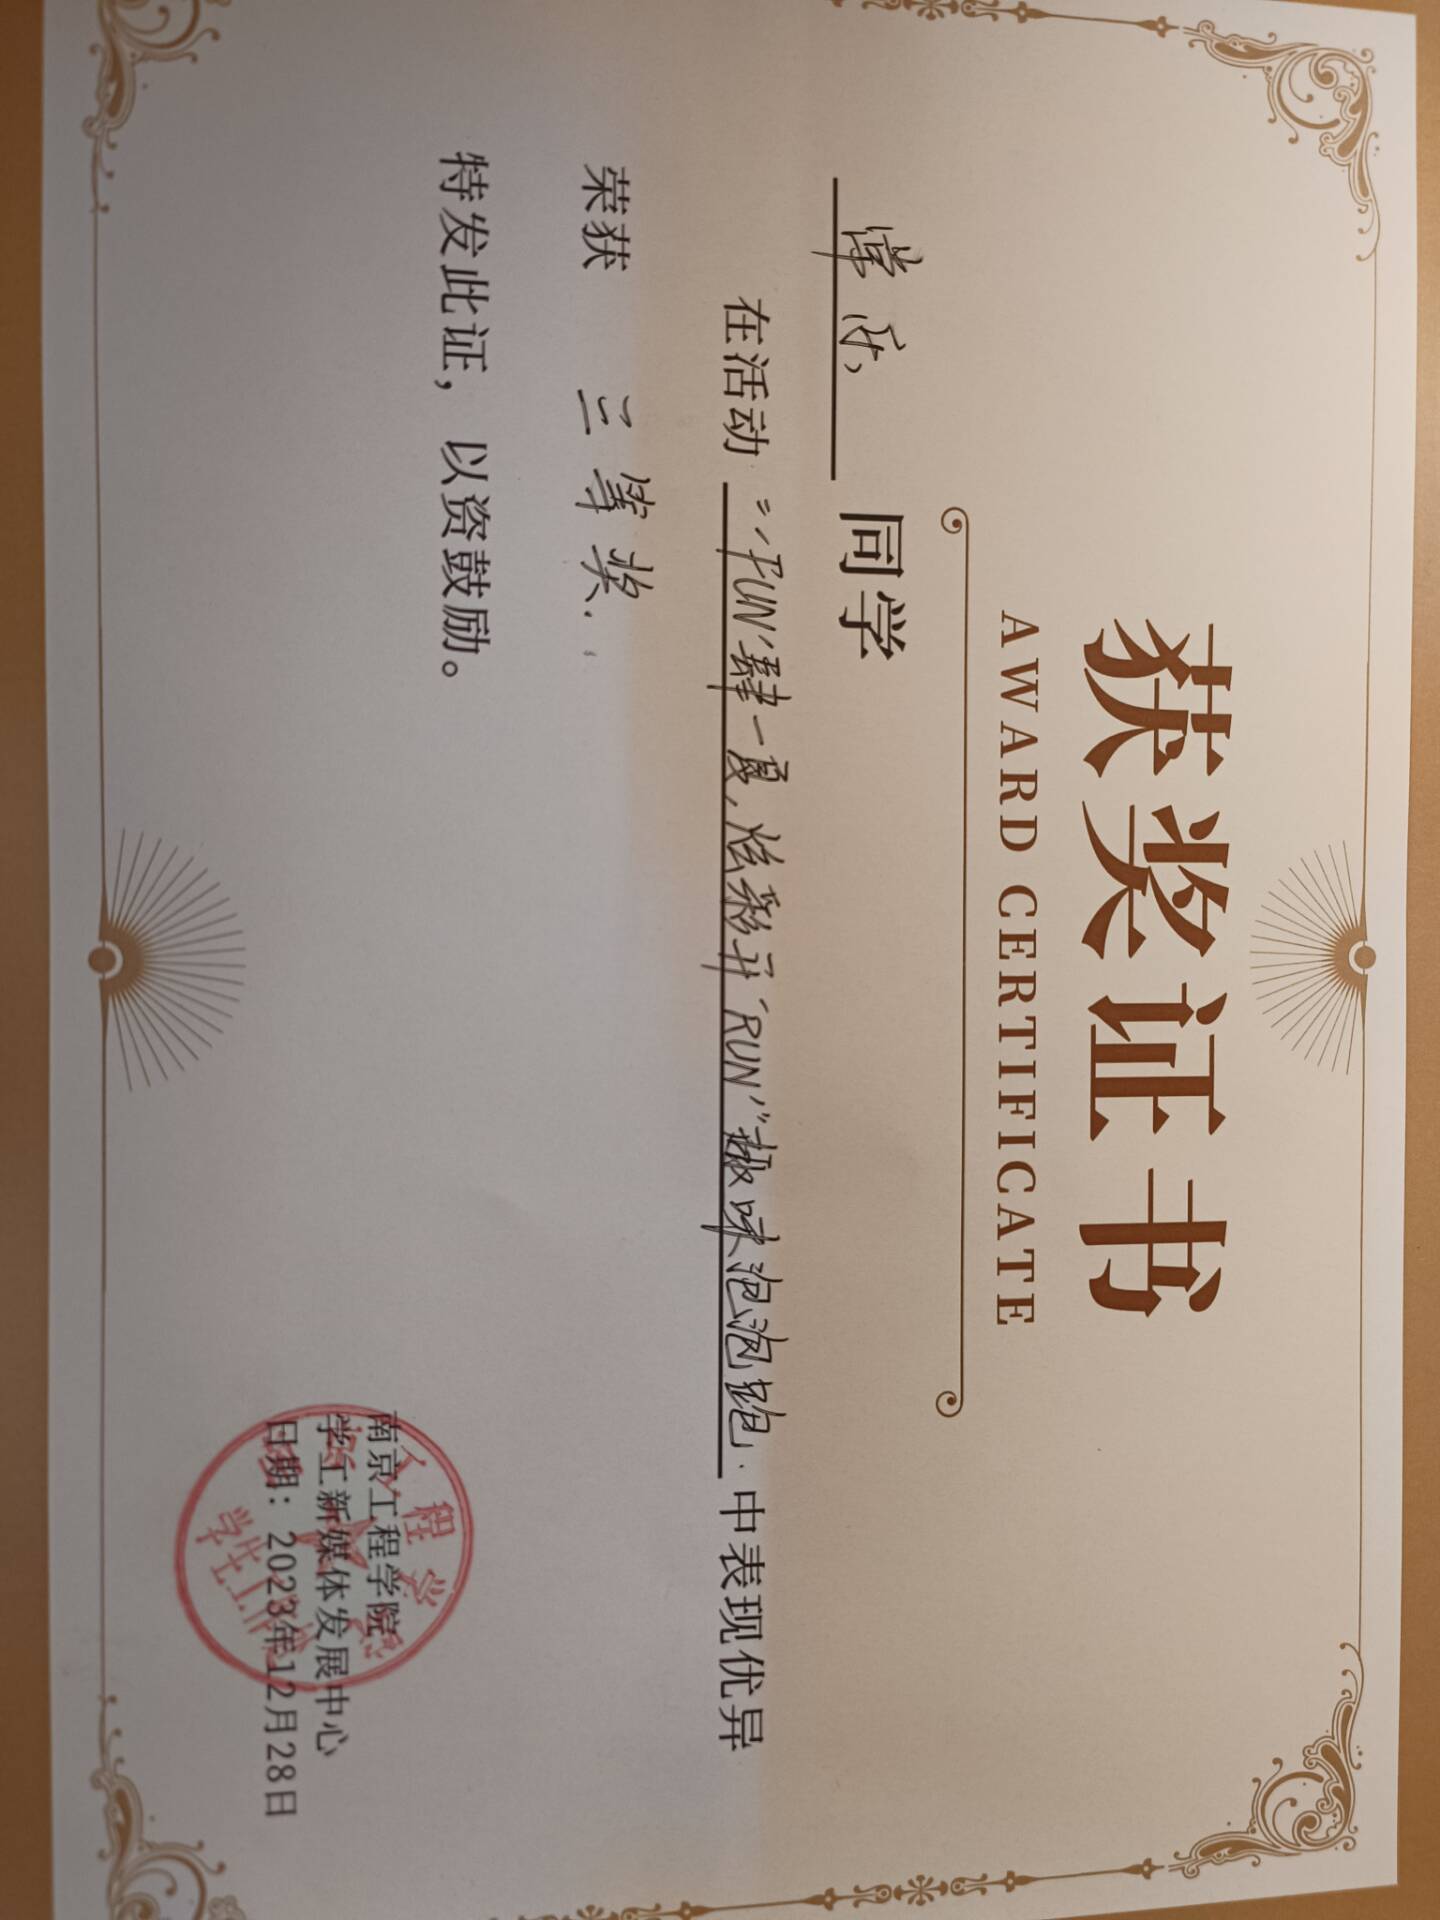 获奖证书
AWARD CERTIFICATE
乐 同学
在活动 “‘FUN’肆一夏，炫彩升‘RUN’”椒味泡泡跑 中表现优异
荣获 三等奖
特发此证，以资鼓励。
南京工程学院
学工新媒体发展中心
日期：2023年12月28日